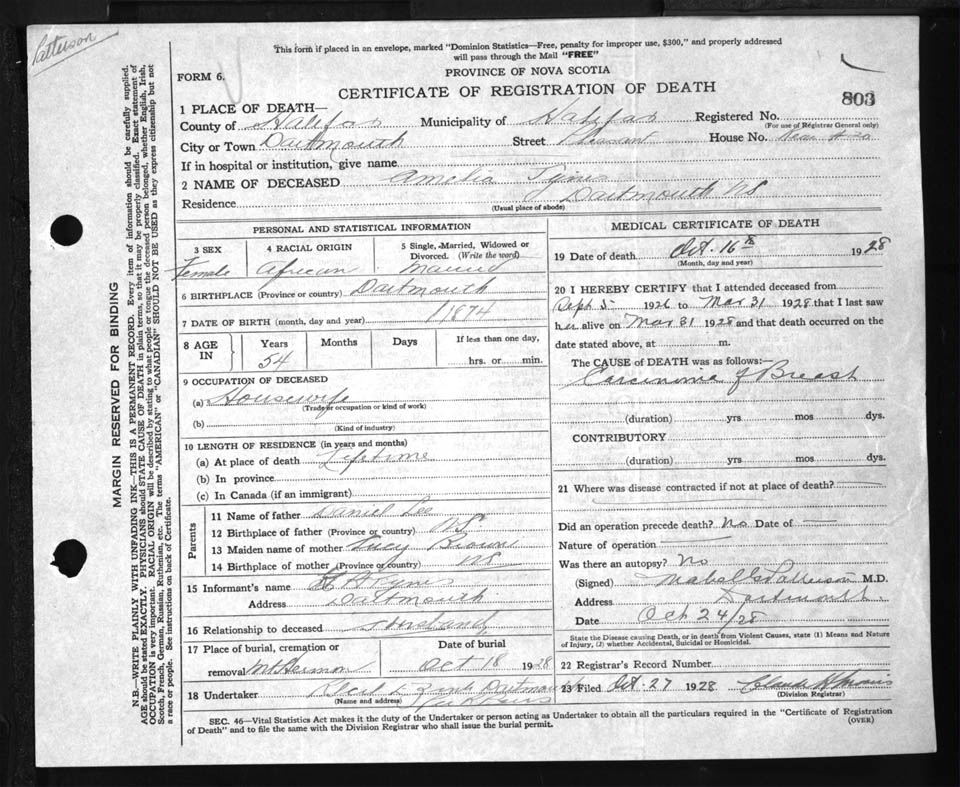 Patterson
This form if placed in an envelope, marked "Dominion Statistics—Free, penalty for improper use, $300," and properly addressed
will pass through the Mail "FREE"
FORM 6.
PROVINCE OF NOVA SCOTIA
CERTIFICATE OF REGISTRATION OF DEATH
803
1 PLACE OF DEATH—
County of Halifax Municipality of Halifax Registered No.
(For use of Registrar General only)
City or Town Dartmouth Street Pleasant House No.
If in hospital or institution, give name
2 NAME OF DECEASED Amelia Tynes
Residence Dartmouth NS
(Usual place of abode)
PERSONAL AND STATISTICAL INFORMATION
3 SEX 4 RACIAL ORIGIN 5 Single, Married, Widowed or
Divorced. (Write the word)
Female African Married
6 BIRTHPLACE (Province or country) Dartmouth
7 DATE OF BIRTH (month, day and year) 1874
8 AGE IN Years Months Days If less than one day,
54 hrs. or min.
9 OCCUPATION OF DECEASED
(a) Housewife
(Trade or occupation or kind of work)
(b)
(Kind of industry)
10 LENGTH OF RESIDENCE (in years and months)
(a) At place of death Lifetime
(b) In province
(c) In Canada (if an immigrant)
Parents
11 Name of father Daniel Lee
12 Birthplace of father (Province or country) NS
13 Maiden name of mother Lucy Brown
14 Birthplace of mother (Province or country) NS
15 Informant's name Tynes
Address Dartmouth
16 Relationship to deceased Husband
17 Place of burial, cremation or Date of burial
removal Mt Hermon Oct 18 1928
18 Undertaker Dartmouth
(Name and address)
MEDICAL CERTIFICATE OF DEATH
19 Date of death Oct. 16th 1928
(Month, day and year)
20 I HEREBY CERTIFY that I attended deceased from
Sept 5 1926 to Mar 31 1928 that I last saw
her alive on Mar 31 1928 and that death occurred on the
date stated above, at m.
The CAUSE of DEATH was as follows:—
Carcinoma of Breast
(duration) yrs mos dys.
CONTRIBUTORY
(duration) yrs mos dys.
21 Where was disease contracted if not at place of death?
Did an operation precede death? No Date of
Nature of operation
Was there an autopsy? No
(Signed) Mabel Patterson M.D.
Address Dartmouth
Date Oct 24/28
State the Disease causing Death, or in death from Violent Causes, state (1) Means and Nature
of Injury, (2) whether Accidental, Suicidal or Homicidal.
22 Registrar's Record Number
23 Filed Oct. 27 1928
(Division Registrar)
SEC. 46—Vital Statistics Act makes it the duty of the Undertaker or person acting as Undertaker to obtain all the particulars required in the "Certificate of Registration
of Death" and to file the same with the Division Registrar who shall issue the burial permit.
(OVER)
MARGIN RESERVED FOR BINDING
N.B.—WRITE PLAINLY WITH UNFADING INK—THIS IS A PERMANENT RECORD. Every item of information should be carefully supplied.
AGE should be stated EXACTLY. PHYSICIANS should STATE CAUSE OF DEATH in plain terms, so that it may be properly classified. Exact statement of
OCCUPATION is very important. RACIAL ORIGIN will be described by stating to what people or tongue the deceased person belonged, whether English, Irish,
Scotch, French, German, Russian, Ruthenian, etc. The terms "AMERICAN" or "CANADIAN" SHOULD NOT BE USED as they express citizenship but not
a race or people. See instructions on back of Certificate.